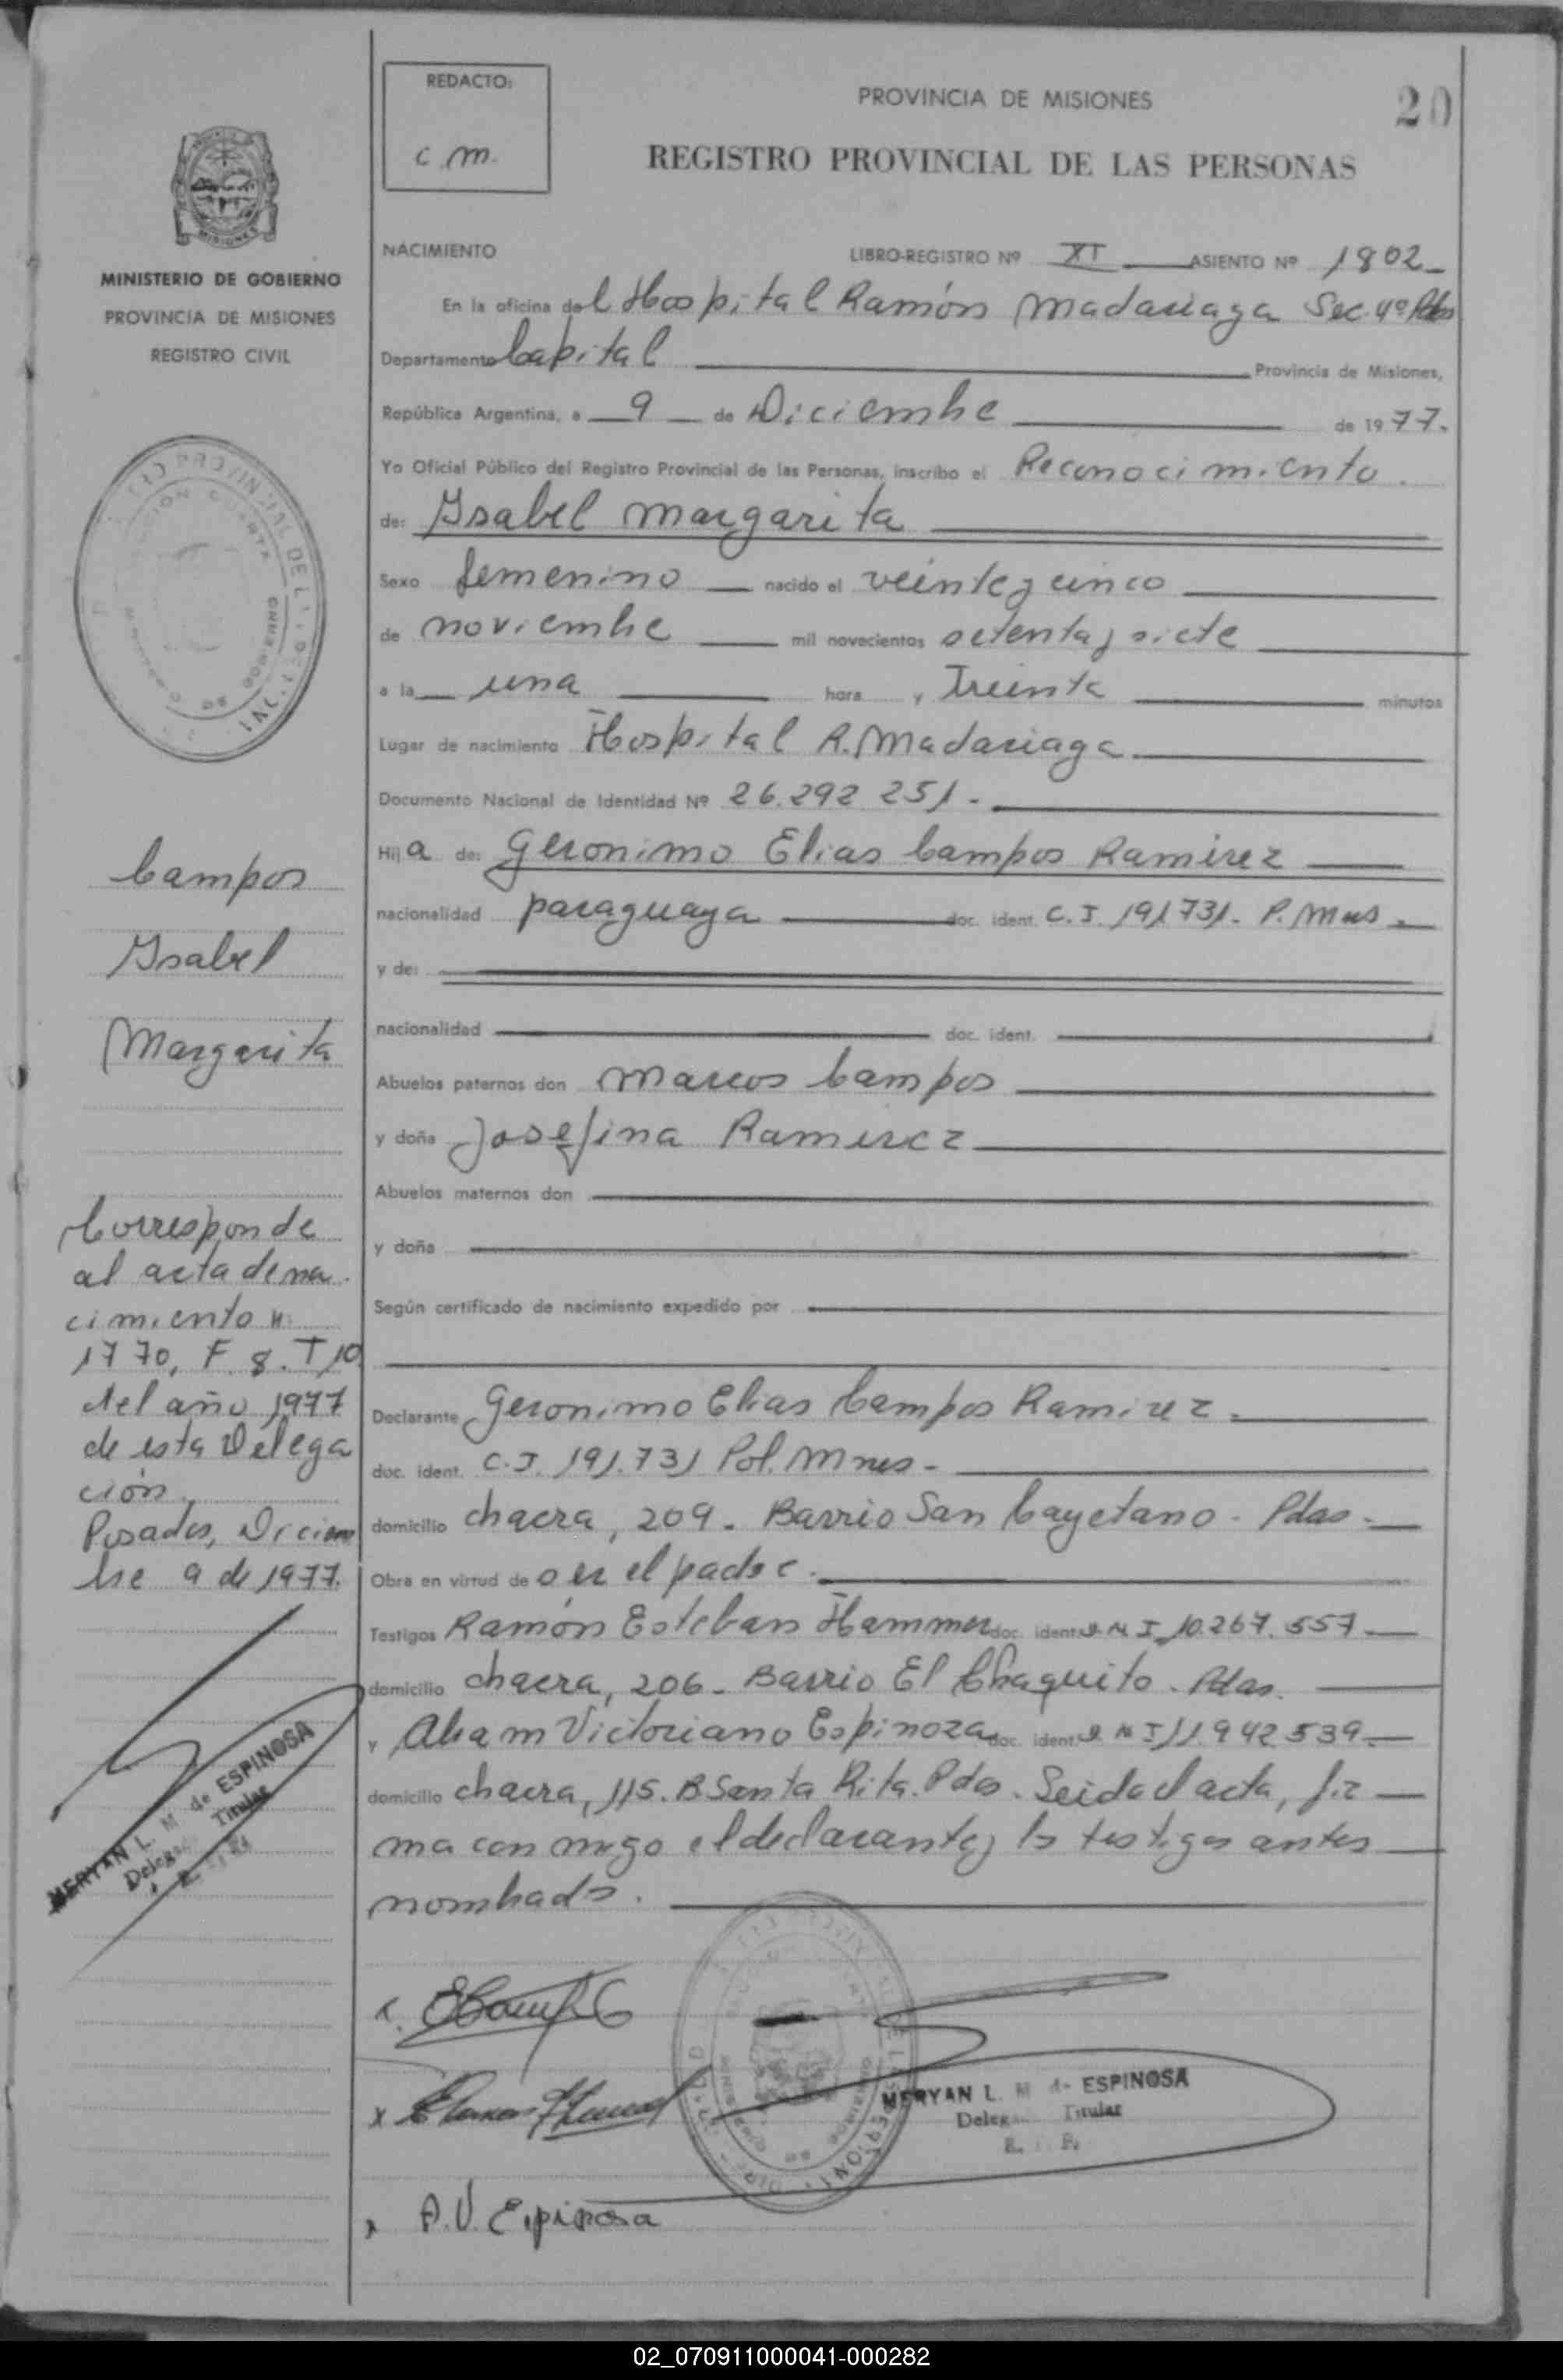 REDACTO:
c.m.
PROVINCIA DE MISIONES
20
REGISTRO PROVINCIAL DE LAS PERSONAS
MINISTERIO DE GOBIERNO
PROVINCIA DE MISIONES
REGISTRO CIVIL
NACIMIENTO LIBRO-REGISTRO Nº XI ASIENTO Nº 1802
En la oficina del Hospital Ramón Madariaga Sec. 4º Pdas
Departamento Capital Provincia de Misiones,
República Argentina, a 9 de Diciembre de 1977.
Yo Oficial Público del Registro Provincial de las Personas, inscribo el Reconocimiento.
de: Ysabel Margarita
Sexo femenino nacido el veinte y cinco
de noviembre mil novecientos setenta y siete
a la una hora y Treinta minutos
Lugar de nacimiento Hospital R. Madariaga.
Documento Nacional de Identidad Nº 26.292 251.-
Hija de: Geronimo Elias Campos Ramirez
nacionalidad paraguaya doc. ident. C.I. 191731. P. Mnes.
y de:
nacionalidad doc. ident.
Abuelos paternos don Marcos Campos
y doña Josefina Ramirez
Abuelos maternos don
y doña
Según certificado de nacimiento expedido por
Declarante Geronimo Elias Campos Ramirez.
doc. ident. C.I. 191.731 Pol. Mnes-
domicilio chacra, 209. Barrio San Cayetano. Pdas.
Obra en virtud de ser el padre.
Testigos Ramón Esteban Hammer doc. ident. D.N.I. 10.267.557
domicilio chacra, 206. Barrio El Chaquito. Pdas.
y Aham Victoriano Espinoza doc. ident. D.N.I 11.942.539
domicilio chacra, 115. B Santa Rita. Pdas. Leida el acta, fir
ma con migo el declarante y los testigos antes
nombrados.
Campos
Ysabel
Margarita
Corresponde
al acta de na
cimiento Nº
1770, F 8. T 10
del año 1977
de esta Delega
ción.
Posadas, Diciem
bre 9 de 1977.
MERYAN L. M de ESPINOSA
Titular
MERYAN L. M de ESPINOSA
Titular
A.V. Espinosa
02_070911000041-000282